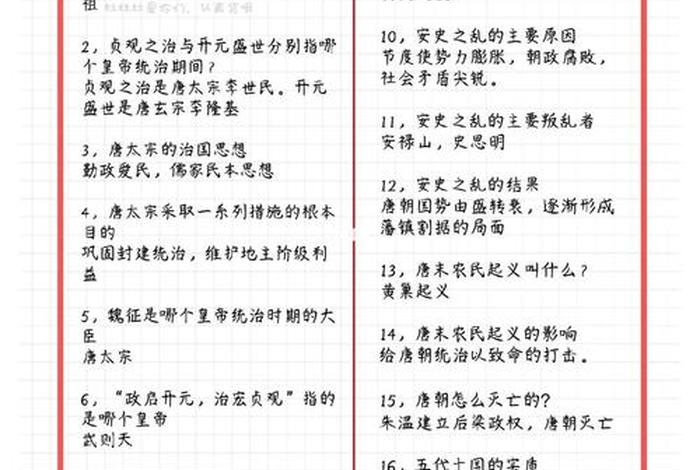 祖
2，贞观之治与开元盛世分别指哪
个皇帝统治期间？
贞观之治是唐太宗李世民。开元
盛世是唐玄宗李隆基
3，唐太宗的治国思想
勤政爱民，儒家民本思想
4，唐太宗采取一系列措施的根本
目的
巩固封建统治，维护地主阶级利
益
5，魏征是哪个皇帝统治时期的大
臣
唐太宗
6，“政启开元，治宏贞观”指的
是哪个皇帝
武则天
10，安史之乱的主要原因
节度使势力膨胀，朝政腐败，
社会矛盾尖锐。
11，安史之乱的主要叛乱者
安禄山，史思明
12，安史之乱的结果
唐朝国势由盛转衰，逐渐形成
藩镇割据的局面
13，唐末农民起义叫什么？
黄巢起义
14，唐末农民起义的影响
给唐朝统治以致命的打击。
15，唐朝怎么灭亡的？
朱温建立后梁政权，唐朝灭亡
16，五代十国的实质